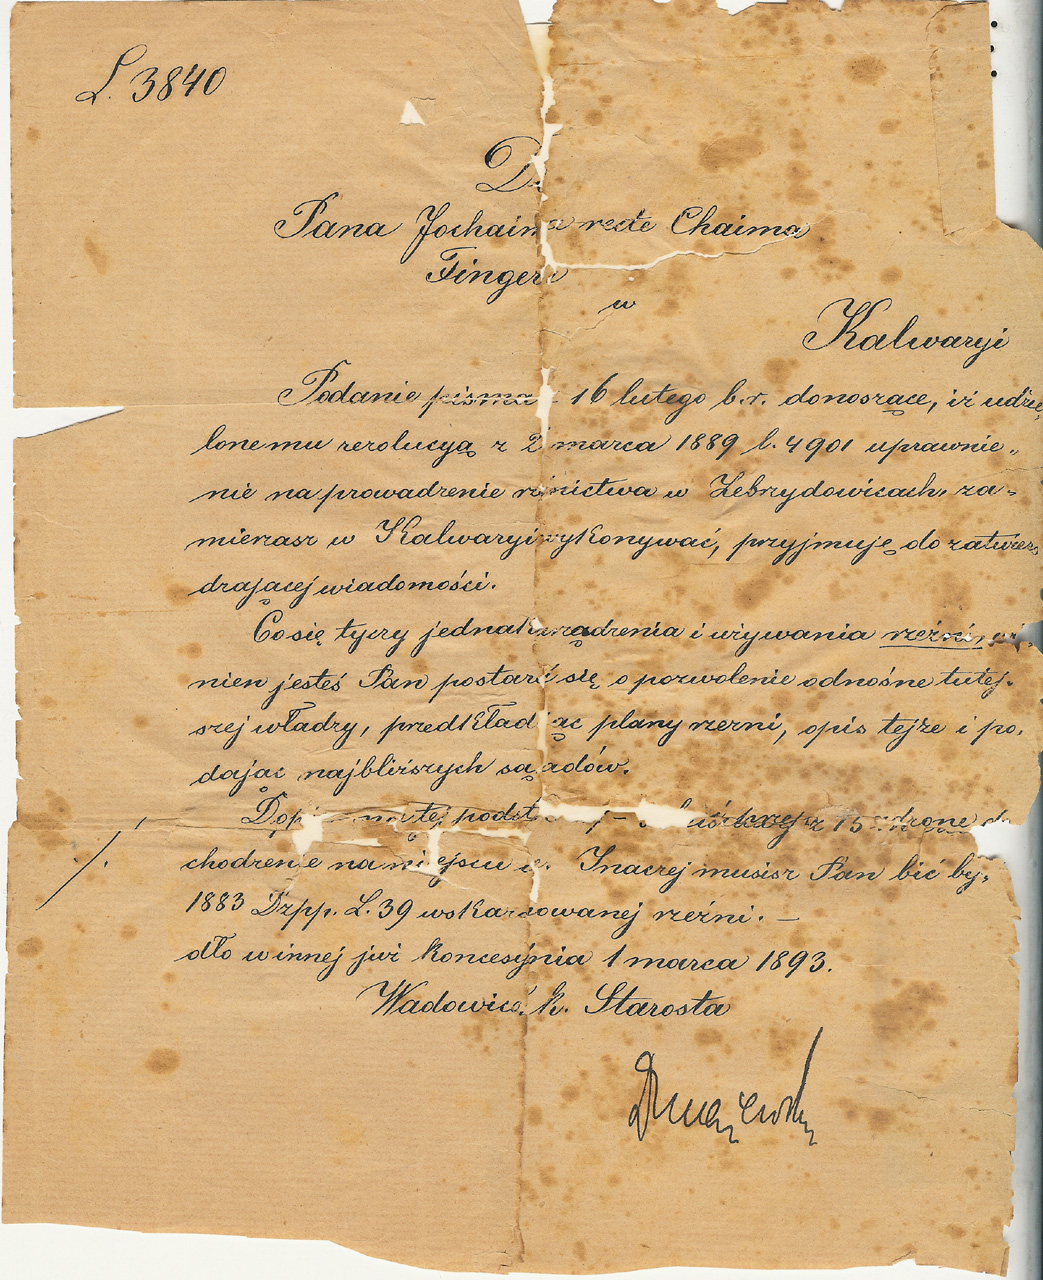 L. 3840
D
Pana Jochaima recte Chaima
Fingera
w
Kalwaryi
Podanie pisma z 16 lutego b.r. donoszące, iż udzie„
lonemu rezolucyą z 2 marca 1889 l. 4901 uprawnie„
nie na prowadzenie rznictwa w Zebrzydowicach, za„
mierzasz w Kalwaryi wykonywać, przyjmuję do zatwier„
dzającej wiadomości.
Co się tyczy jednak urządzenia i używania rzeźni, wi„
nien jesteś Pan postarać się o pozwolenie odnośne tutej„
szej władzy, predkładając plany rzezni, opis tejże i po„
dając najbliższych sąsiadów.
na tej z 15
chodzenie na miejscu Inaczej musisz Pan bić by„
1883 Dzpp. L. 39 wskazowanej rzeźni. —
dło w innej już koncesy nia 1 marca 1893.
k. Starosta